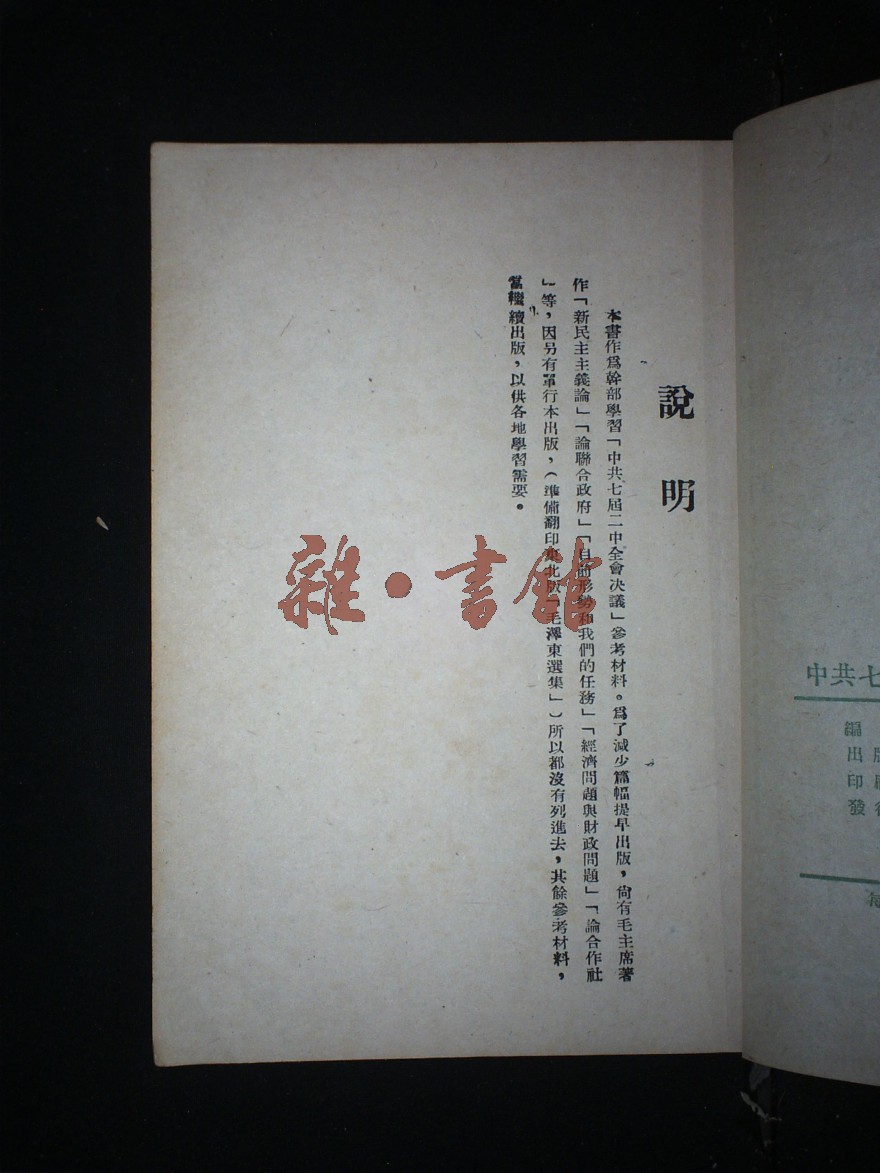 說明
本書作爲幹部學習「中共七屆二中全會決議」參考材料。爲了減少篇幅提早出版，尙有毛主席著
作「新民主主義論」「論聯合政府」「目前形勢和我們的任務」「經濟問題與財政問題」「論合作社
」等，因另有單行本出版，（準備翻印東北版「毛澤東選集」）所以都沒有列進去，其餘參考材料，
當繼續出版，以供各地學習需要。
雜·書館
中共七
編
出版
印
發
每